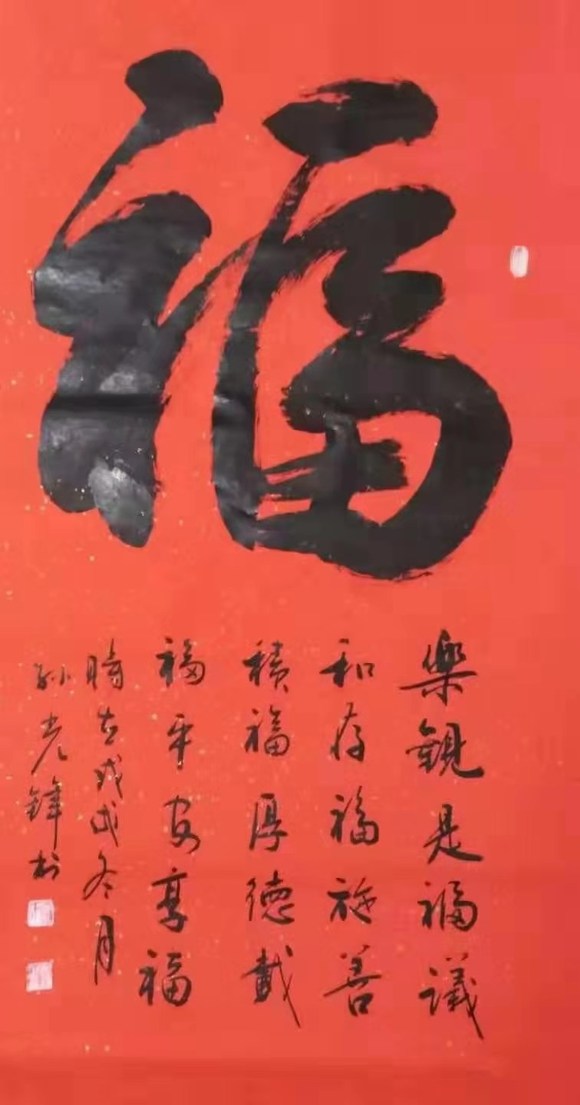 福
樂觀是福議
和存福施善
積福厚德載
福平安享福
時在戊戌冬月
孫光鋒書